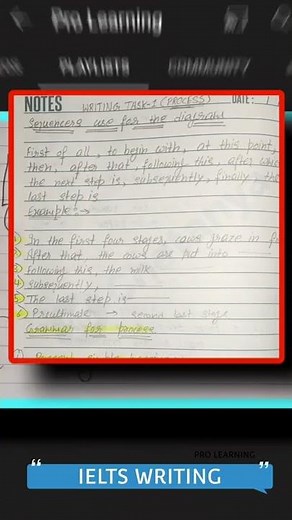 Pro Learning
PLAYLISTS
COMMUNITY
NOTES WRITING TASK-1 (PROCESS) DATE:
Sequencers use for the diagram
First of all, to begin with, at this point,
then, after that, following this, after which
the next step is, subsequently, finally, the
last step is
Example:→
1 In the first four stages, cows graze in
2 After that, the cows are fed into
3 Following this, the milk
4 Subsequently,
5 The last step is
6 → last stage
Grammar for process
PRO LEARNING
“ IELTS WRITING ”